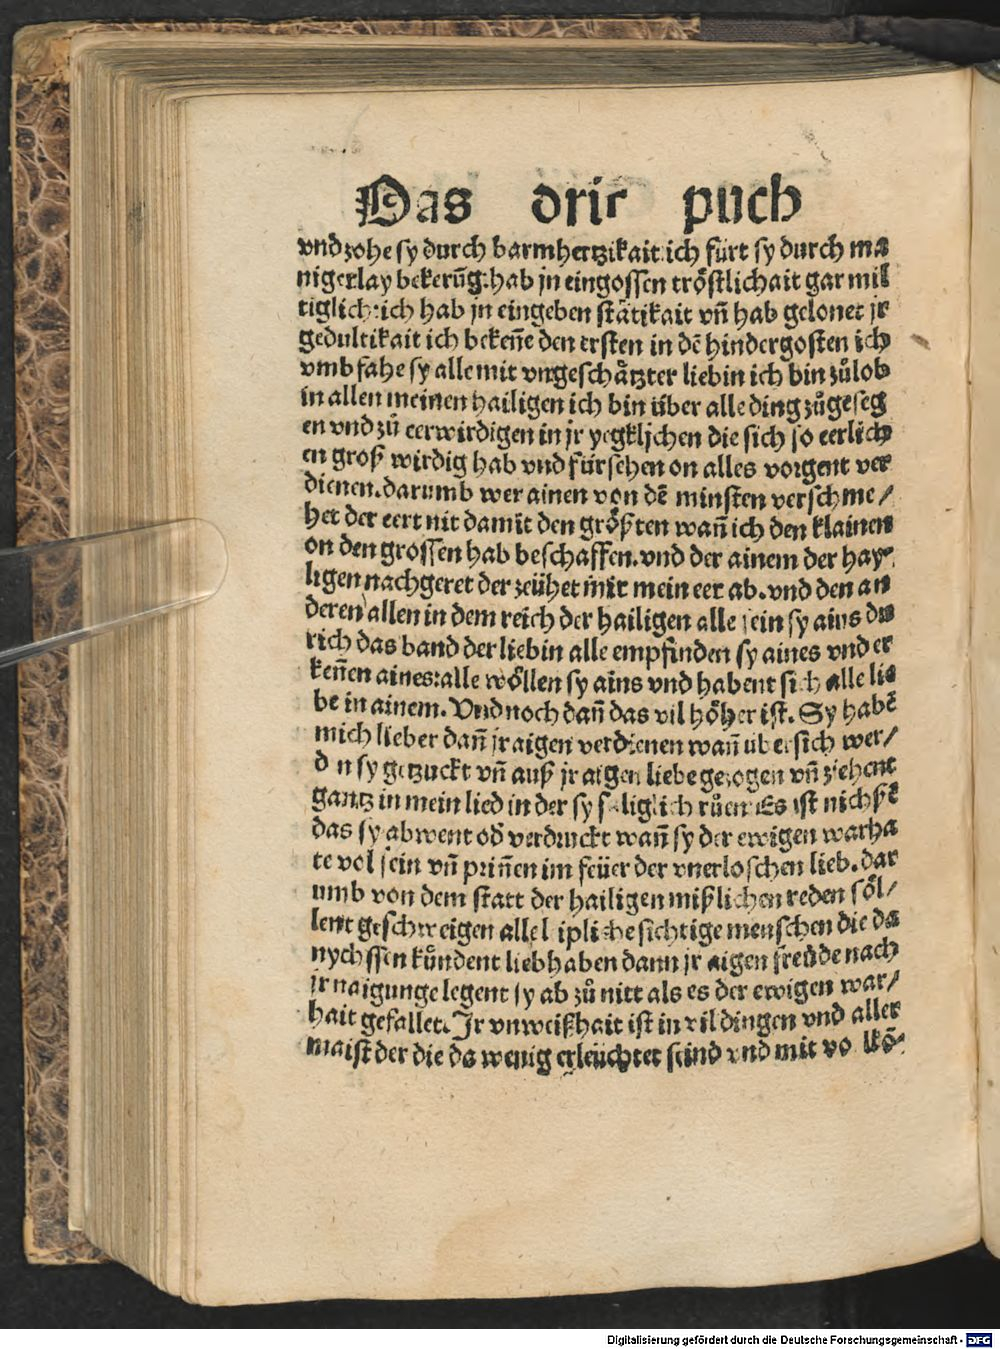 Das drit puch
vnd zohe sy durch barmhertzikait. ich fürt sy durch ma
nigerlay bekerūg. hab jn eingossen tröstlichait gar mil
tiglich: ich hab jn eingeben stätikait vñ hab gelonet jr
gedultikait ich bekeñe den ersten in dē hindergosten ich
vmbfahe sy alle mit vngeschätzter lieb in ich bin zůlob
in allen meinen hailigen ich bin über alle ding zůgeseg
en vnd zů eerwirdigen in jr yegkljchen die sich so eerlich
en groß wirdig hab vnd fürsehen on alles vorgent ver
dienen. darumb wer ainen von dē minsten verschme/
het der eert nit damit den größten wañ ich den klainen
on den grossen hab beschaffen. vnd der ainem der hay
ligen nachgeret der zeühet mir mein eer ab. vnd den an
deren allen in dem reich der hailigen alle sein sy ains du
rich das band der lieb in alle empfinden sy aines vnd er
keñen aines: alle wöllen sy ains vnd habent sich alle lie
be in ainem. Vnd noch dañ das vil höher ist. Sy habē
mich lieber dañ jr aigen verdienen wañ über sich wer/
d n sy getzuckt vñ auß jr aigen liebe gezogen vñ ziehent
gantz in mein lied in der sy säliglich růen Es ist nichßt
das sy abwent od̄ verdruckt wañ sy der ewigen warha
te vol sein vñ priñen im feüer der vnerloschen lieb. dar
umb von dem statt der hailigen mißlichen reden söl/
lent geschweigen alle lipliche sichtige menschen die da
nychssen kündent liebhaben dann jr aigen freüde nach
jr naigunge legent sy ab zů nitt als es der ewigen war/
hait gefallet. Jr vnweißhait ist in vil dingen vnd aller
maist der die da wenig erleüchtet seind vnd mit vo lkō
Digitalisierung gefördert durch die Deutsche Forschungsgemeinschaft - DFG